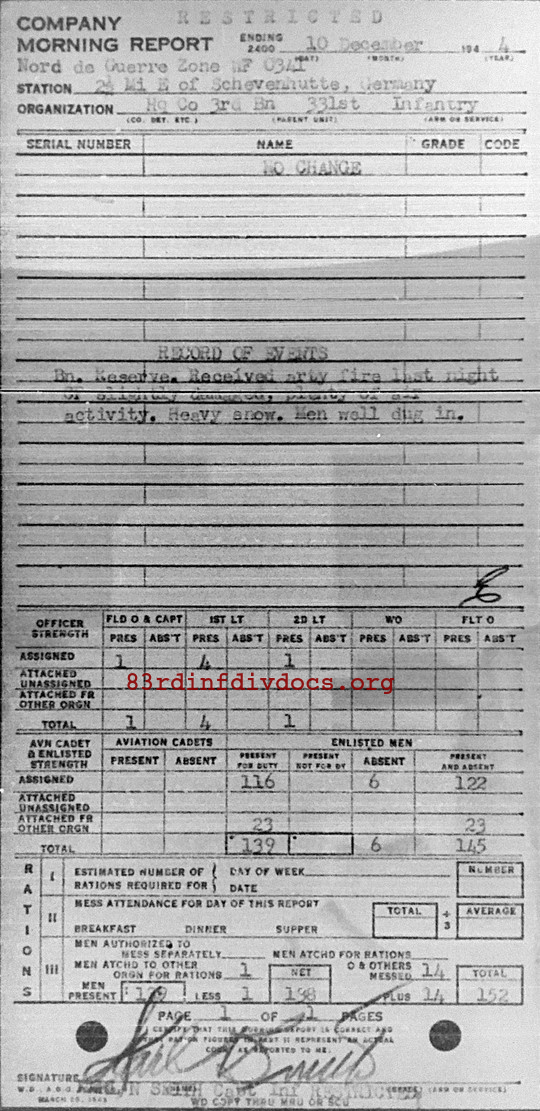 RESTRICTED
COMPANY
MORNING REPORT ENDING 2400 10 December 194 4
(DAY) (MONTH) (YEAR)
Nord de Guerre Zone WF 0341
STATION 2½ Mi E of Schevenhutte, Germany
ORGANIZATION Hq Co 3rd Bn 331st Infantry
(CO. DET. ETC.) (PARENT UNIT) (ARM OR SERVICE)
SERIAL NUMBER NAME GRADE CODE
NO CHANGE
RECORD OF EVENTS
Bn. Reserve. Received arty fire last night
CP slightly damaged, plenty of air
activity. Heavy snow. Men well dug in.
E
OFFICER STRENGTH FLD O & CAPT 1ST LT 2D LT WO FLT O
PRES ABS'T PRES ABS'T PRES ABS'T PRES ABS'T PRES ABS'T
ASSIGNED 1 4 1
ATTACHED UNASSIGNED
83rdinfdivdocs.org
ATTACHED FR OTHER ORGN
TOTAL 1 4 1
AVN CADET & ENLISTED STRENGTH AVIATION CADETS ENLISTED MEN
PRESENT ABSENT PRESENT FOR DUTY PRESENT NOT FOR DY ABSENT PRESENT AND ABSENT
ASSIGNED 116 6 122
ATTACHED UNASSIGNED
ATTACHED FR OTHER ORGN 23 23
TOTAL 139 6 145
RATIONS
I ESTIMATED NUMBER OF RATIONS REQUIRED FOR DAY OF WEEK DATE NUMBER
II MESS ATTENDANCE FOR DAY OF THIS REPORT TOTAL ÷ 3 AVERAGE
BREAKFAST DINNER SUPPER
III MEN AUTHORIZED TO MESS SEPARATELY MEN ATCHD FOR RATIONS
MEN ATCHD TO OTHER ORGN FOR RATIONS 1 NET O & OTHERS MESSED 14 TOTAL
MEN PRESENT 139 LESS 1 138 PLUS 14 152
PAGE 1 OF 1 PAGES
I CERTIFY THAT THIS MORNING REPORT IS CORRECT AND
THAT RATION FIGURES IN PART III REPRESENT AN ACTUAL
COUNT AS REPORTED TO ME.
SIGNATURE
SMITH Capt Inf RESTRICTED
(NAME) (GRADE) (ARM OR SERVICE)
MARCH
WD COPY THRU MRU OR SCU